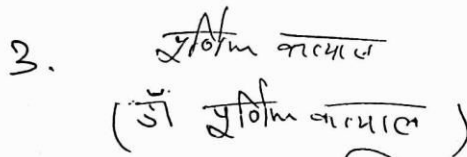 3. पूर्णिमा कात्याल
(डॉ पूर्णिमा कात्याल)